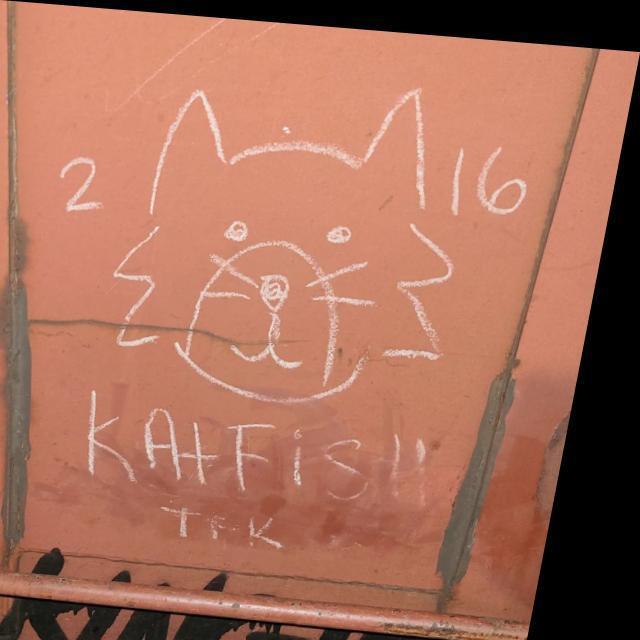 2 16
KATFISH
TFK